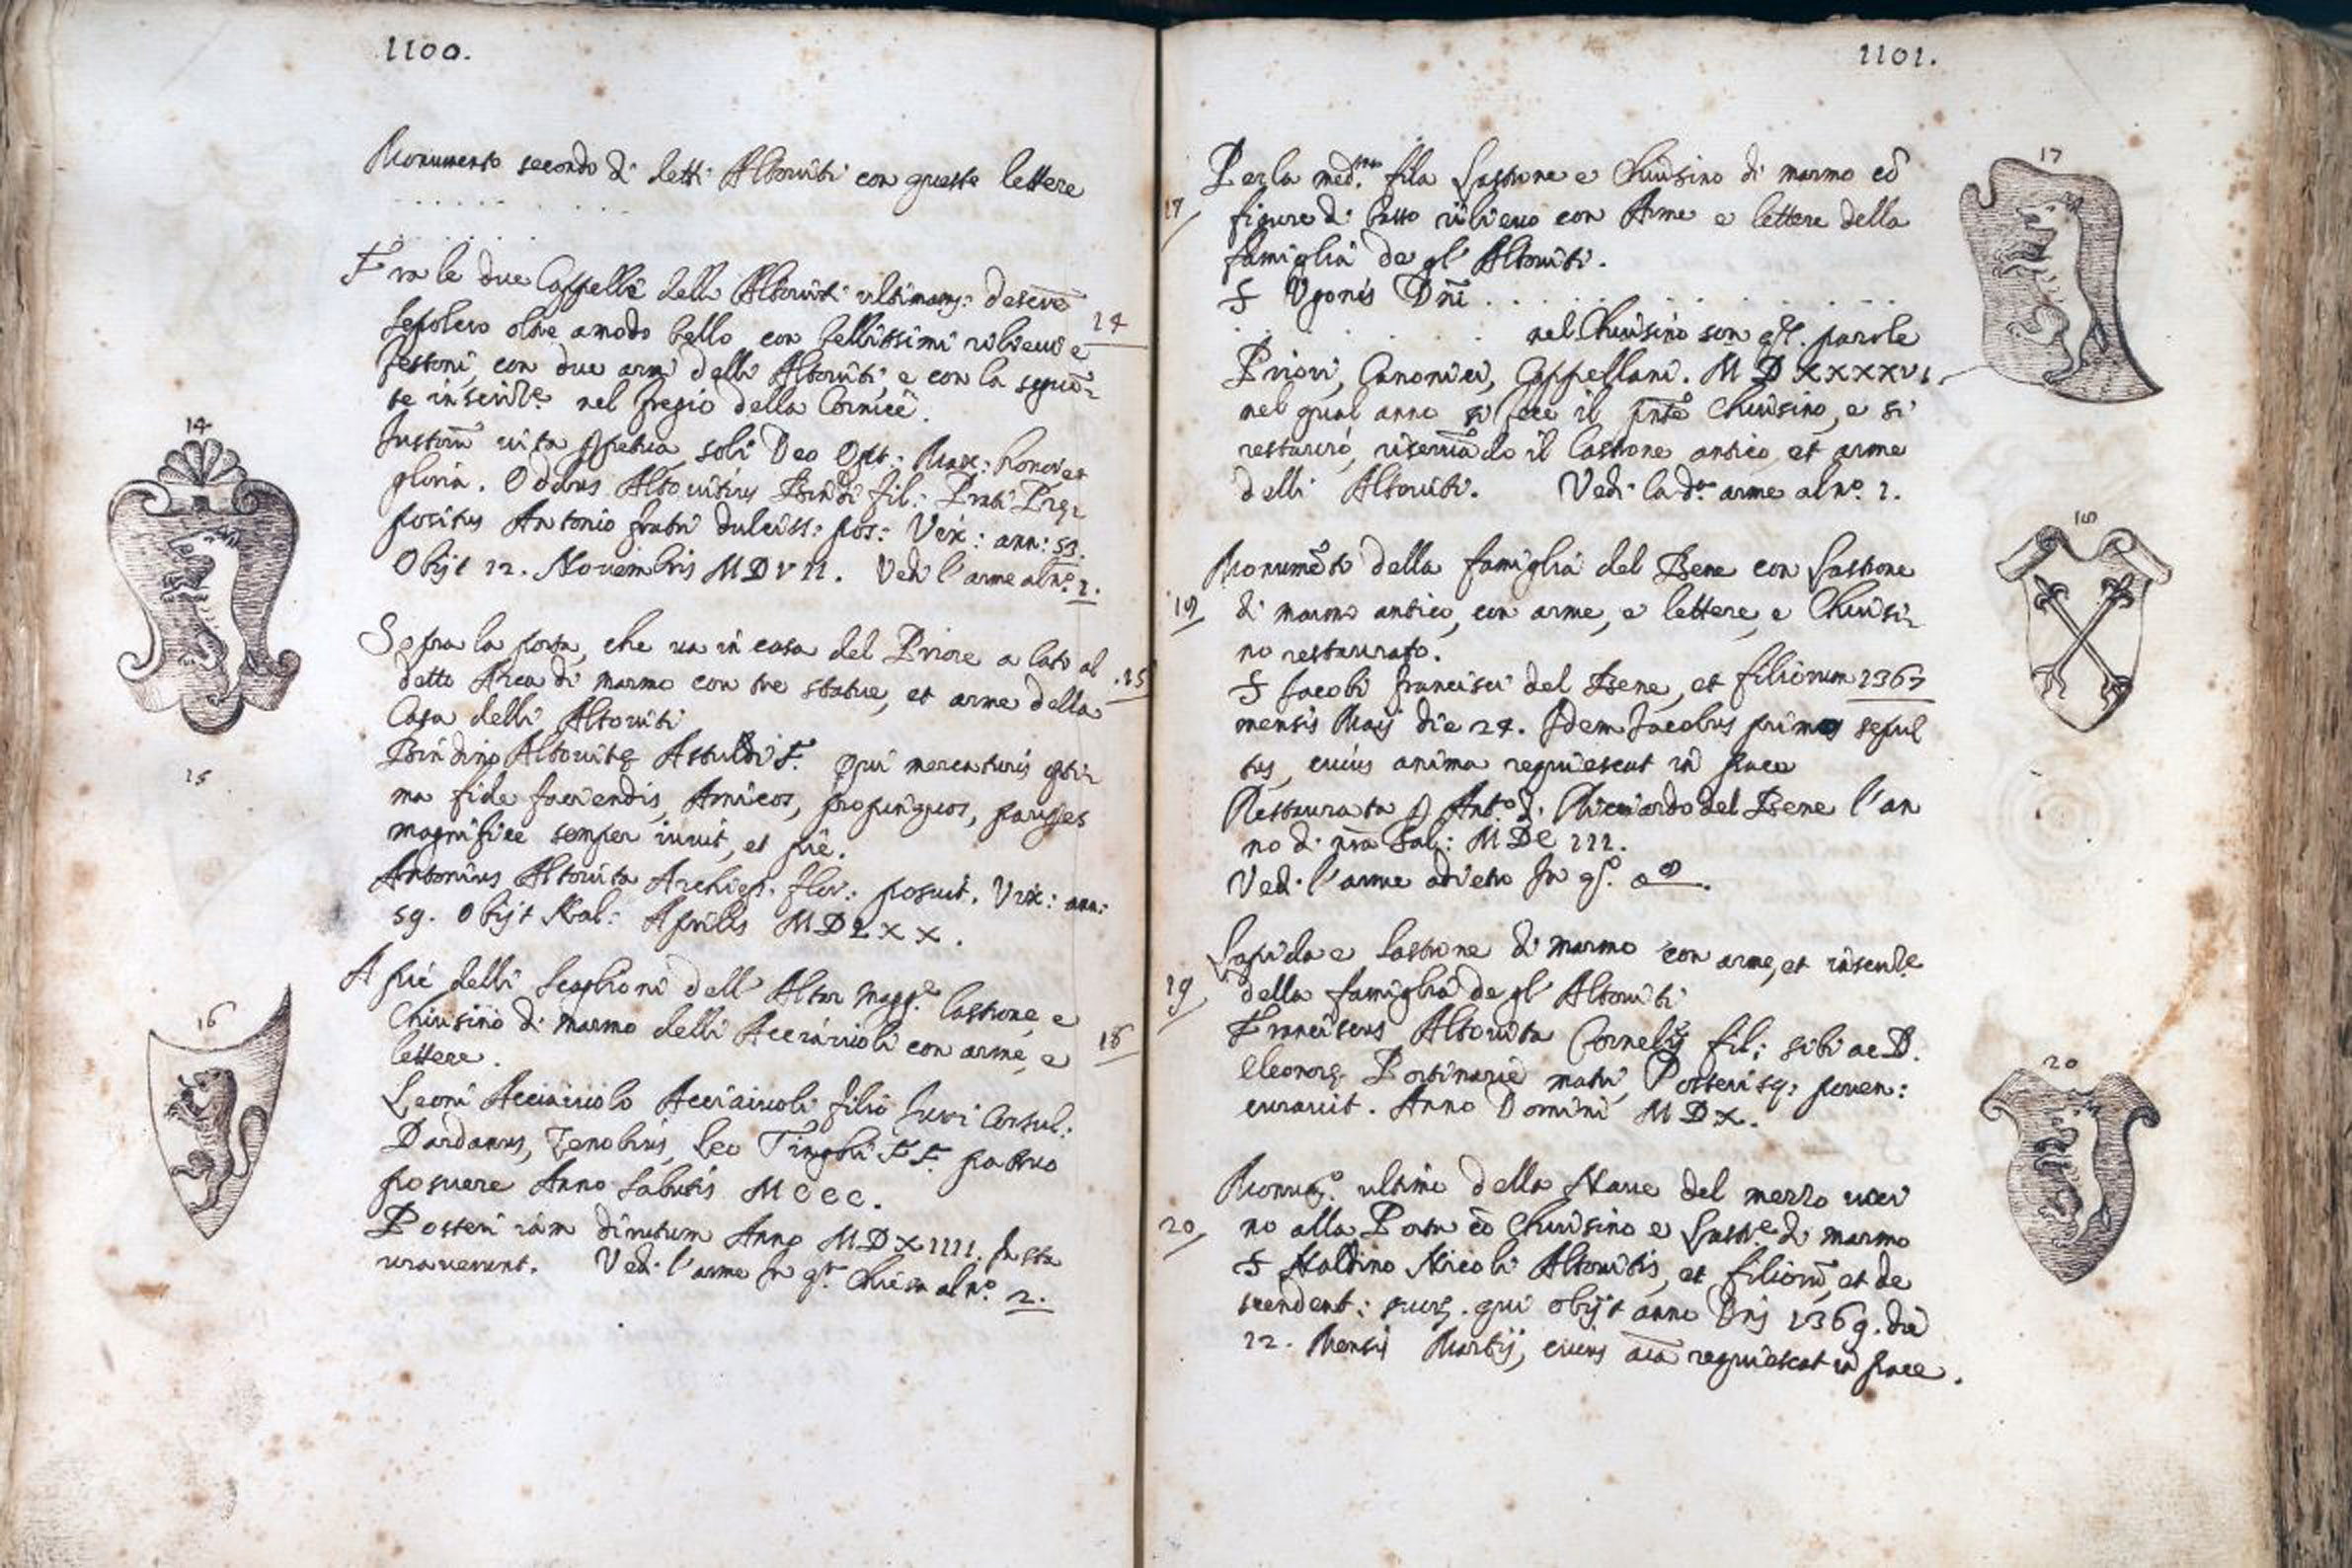 1100.
Monumento secondo di detti Altoviti con queste lettere
. . . . . . . . . .
Fra le due Cappelle delli Altoviti ultimam: descrē
sepolcro oltre a modo bello con bellissimi rilievi e
festoni, con due armi delli Altoviti, e con la seguē-
te inscriz.e nel fregio della Cornice.
14
Justorū vita ppetua, soli Deo Opt: Max: honor et
gloria. Oddus Altovitus Bindi fil: Prati Prę-
positus Antonio fratri dulciss: pos: Vix: ann: 53.
Obijt 12. Novembris MDVII. Vedi l'arme al n.o 1.
14
Sopra la porta, che va in casa del Priore a lato al
detto Arca di marmo con tre statue, et arme della
Casa delli Altoviti
15
Bindino Altovitę Astuldi F. qui mercaturis opti-
ma fide faciendis, Amicos, propinquos, pauperes
magnifice semper iuvit, et piè.
Antonius Altovita Archiep. flor: posuit. Vix: ann:
59. Obijt Kal: Aprilis MDLXX.
15
A piè delli scaglioni dell' Altar magg.e lastrone, e
Chiusino di marmo delli Acciaiuoli con arme, e
lettere.
16
Leoni Acciaiuolo Acciaiuoli filio Juri Consul:
Dardanus, Zenobius, Leo Tinghi FF. patruo
posuere Anno Salutis MCCC.
Posteri iam dirutum Anno MDXIIII. Insta
uraverunt. Vedi l'arme in q.ta Chiesa al n.o 2.
16
1101.
Per la med.ma fila lastrone e Chiusino di marmo cō
figure di basso rilievo con Arme e lettere della
famiglia de gl' Altoviti.
17
S Ugonis Dn̄i . . . . . . . . . .
. . . . . nel Chiusino son q.te parole
Priori, Canonici, Cappellani. MDXXXXVI.
nel qual anno si fece il pn̄te Chiusino, e si
restaurò, riservādo il lastrone antico, et arme
delli Altoviti. Vedi la d.a arme al n.o 1.
17
Monumēto della famiglia del Bene con lastrone
di marmo antico, con arme, e lettere, e Chiusi-
no restaurato.
18
S Jacobi francisci del Bene, et filiorum 1363
mensis Maij die 24. Idem Jacobus primus sepul
tus, cuius anima requiescat in pace
Restaurata p Ant.o di Ricciardo del Bene l'an
no di nr̄a Sal: MDCIII.
Vedi l'arme adietro In q.o
18
Lapida e lastrone di marmo con arme, et inscriz.e
della famiglia de gl' Altoviti
19
Franciscus Altovita Cornelij fil: sibi ac D.
Eleonorę Portinarie matri, Posterisq; poven:
curavit. Anno Domini MDX.
Monum.o ultimo della Nave del mezzo vici
no alla Porta cō Chiusino e lastr.e di marmo
20
S Naldino Nicoli Altovitis, et filiorū, et de
scendent: suorz. qui obijt anno Dn̄i 1369. die
12. Mensis Martij, cuius aīa requiescat in pace.
20